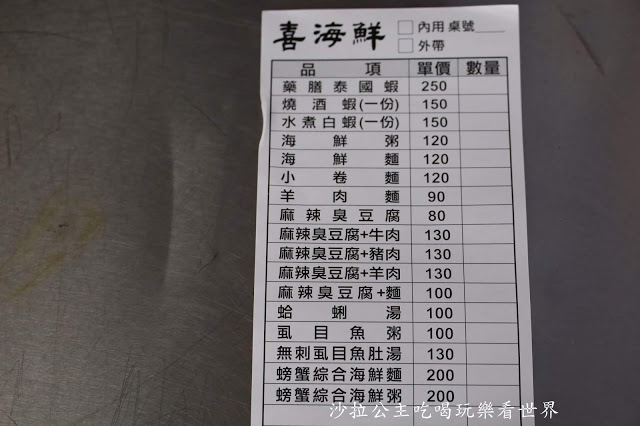 喜海鮮 □內用 桌號____
□外帶
品項 單價 數量
藥膳泰國蝦 250
燒酒蝦(一份) 150
水煮白蝦(一份) 150
海鮮粥 120
海鮮麵 120
小卷麵 120
羊肉麵 90
麻辣臭豆腐 80
麻辣臭豆腐+牛肉 130
麻辣臭豆腐+豬肉 130
麻辣臭豆腐+羊肉 130
麻辣臭豆腐+麵 100
蛤蜊湯 100
虱目魚粥 100
無刺虱目魚肚湯 130
螃蟹綜合海鮮麵 200
螃蟹綜合海鮮粥 200
沙拉公主吃喝玩樂看世界